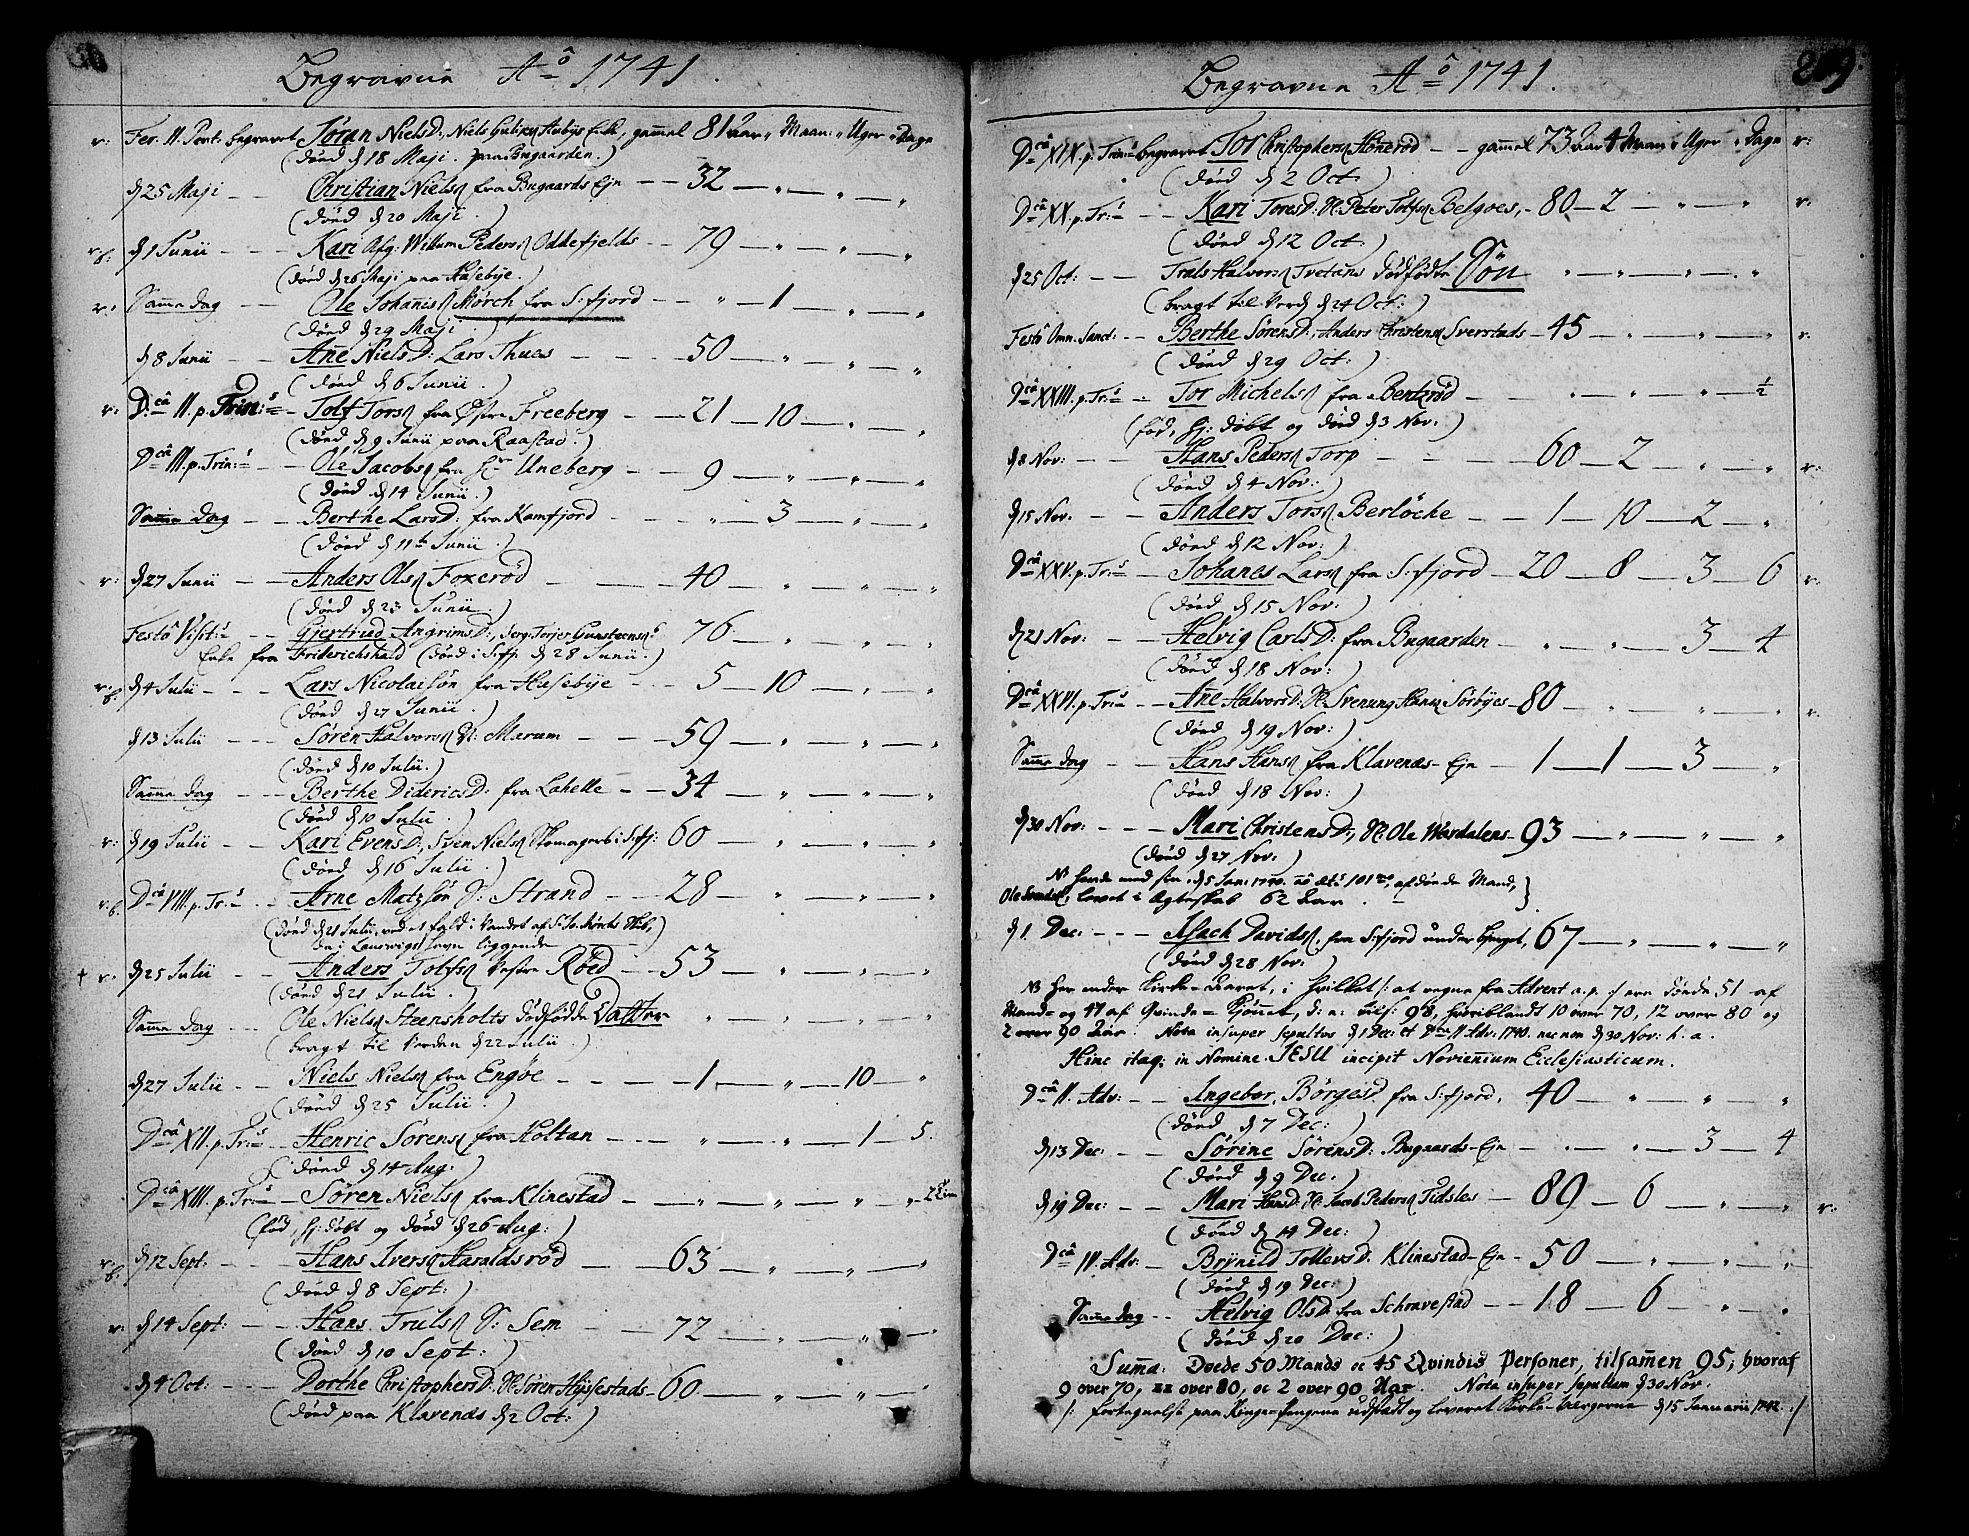 Begravne Aō 1741.
r: Fer. II. Pent. begravet Jøran NielsD:, Niels Aubys Enke, gammel 81 Aar " Maan: " Uger " Dage
(døed d 18 Maji. paa Bugaarden.)
d 25 Maji – – Christian Niels: fra Bugaards Eje – – 32 – " – " – "
(døed d 20 Maji.)
d 1 Junii – – Kari Afg: Willum Peders: Oddefjelds – – 79 – " – " – "
(døed d 26 Maji paa Husebye.)
r: Samme dag – – Ole Johanis: Mørch fra S:fjord – – " – 1 – " – "
(døed d 29 Maji.)
d 8 Junii – – Anne NielsD: Lars Thues – – 50 – " – " – "
(døed d 6 Junii.)
r: D:câ II. p. Trin: – Tolf Tors: fra Østre Freeberg – – 21 – 10 – " – "
(døed d 9 Junii paa Raastad.)
D:câ III. p. Trin: – – Ole Jacobs: fra Uneberg – – 9 – " – " – "
(døed d 14 Junii.)
Samme dag – – Berthe LarsD: fra Kamfjord – – " – 3 – " – "
(døed d 11te Junii.)
r: d 27 Junii – – Anders Ols: Foxerød – – 40 – " – " – "
(døed d 23 Junii.)
Festo Visit: – – Gjertrud AngrimsD:, Torjer Gunstensens 76 – " – " – "
Enke fra Friderichshald (døed i S:fj: d 28 Junii.)
r: b. d 4 Julii – – Lars Nicolaisøn fra Husebye – – 5 – 10 – " – "
(døed d 27 Junii.)
d 13 Julii – – Søren Halvors: N: Marum – – 59 – " – " – "
(døed d 10 Julii.)
Samme dag – – Berthe DidericsD: fra Lahelle – – 34 – " – " – "
(døed d 10 Julii.)
r: d 19 Julii – – Kari EvensD:, Sven Niels: Skomagers i S:fj: 60 – " – " – "
(døed d 16 Julii.)
r: b. D:câ VIII. p. Tr: – – Arne Matzsøn S: Strand – – 28 – " – " – "
(døed d 21 Julii, ved et fald i Vandet af Skib,
i Laurwigs havn liggende)
† r: d 25 Julii – – Anders Tolfs: Vestre Røed – – 53 – " – " – "
(døed d 21 Julii.)
Samme dag – – Ole Niels: Steensholts dødfødde Datter " – " – " – "
(bragt til Verden d 22 Julii.)
d 27 Julii – – Niels Niels: fra Engøe – – 1 – " – 10 – "
(døed d 25 Julii.)
D:câ XII. p. Tr: – Henric Sørens: fra Holtan – – " – " – 1 – 5.
(døed d 14 Aug:)
D:câ XIII. p. Tr: – Søren Niels: fra Klinestad – " – " – " – "
(fød, hj: døbt og døed d 26 Aug:)
r: b. d 12 Sept: – – Hans Ivers: Haraldsrød – – 63 – " – " – "
(døed d 8 Sept:)
r: d 14 Sept: – – Hans Truls: S: Sem – – 72 – " – " – "
(døed d 10 Sept:)
d 4 Oct: – – Dorthe ChristophersD: H: Søren Hystestads – 60 – " – " – "
(døed paa Klavenæs d 2 Oct:)
Begravne Aō 1741. 219.
D:câ XIX. p. Trin: begravet Tor Christophers: Hønerød – – gammel 73 Aar 4 Maan " Uger " Dage r:
(døed d 2 Oct:)
D:câ XX. p. Tr: – – Kari ToresD: H: Peter Tolfs: Belgoes, – 80 – 2 – " – " r:
(døed d 12 Oct:)
d 25 Oct: – – Truls Halvors: Tvetans dødfødte Søn " – " – " – "
(bragt til Verd: d 24 Oct:)
Festo Omn. Sanct: – – Berthe SørensD:, Anders Christens: Sverstads – 45 – " – " – " r:
(døed d 29 Oct:)
D:câ XXIII. p. Tr: – Tor Michels: fra Bentzrød – " – " – " – ½
(fød, hj: døbt og død d 3 Nov.)
d 8 Nov: – – Hans Peders: Torp – – 60 – 2 – " – " r:
(døed d 4 Nov:)
d 15 Nov. – – Anders Tors: Berløche – – 1 – 10 – 2 – "
(døed d 12 Nov:)
D:câ XXV. p. Tr: – Johanes Lars: fra S:fjord – 20 – 8 – 3 – 6 r:
(døed d 15 Nov:)
d 21 Nov: – – Helvig CarlsD: fra Bugaarden – " – " – 3 – 4
(døed d 18 Nov:)
D:câ XXVI. p. Tr: – – Ane HalvorsD: H: Svenung Hans: Sørbyes – 80 – " – " – " r:
(døed d 19 Nov:)
Samme dag – – Hans Hans: fra Klavenæs-Eje – 1 – 1 – 3 – "
(døed d 18 Nov:)
d 30 Nov: – – Mari ChristensD:, H: Ole Wardalens – 93 – " – " – "
(døed d 27 Nov:)
NB hende med sin d 5 Jan: 1740. 101 afdøde Mand,
levet i Egteskab 62 Aar.
d 1 Dec: – – Isach Davids:, fra S:fjord under bjerget, 67 – " – " – "
(døed d 28 Nov:)
NB her under Kirke-Aaret, i hvilket /: at regne fra Advent a. p. :/ ere døde 51 af
Mand- og 47 af Qvinde-Kjønnet, d: e: tils: 98, hvoriblandt 10 over 70, 12 over 80 og
2 over 90 Aar. Nota insuper sepultos d 1 Dec: et D:câ II Adv: 1740. nec non d 30 Nov: h. a.
Hinc itaq: in Nomine JESU incipit Noviennium Ecclesiasticum.
D:câ II. Adv: – – Ingebor BørgesD. fra S:fjord, 40 – " – " – "
(døed d 7 Dec:)
d 13 Dec: – – Sørine SørensD: Bugaards-Eje – " – " – 3 – 4
(døed d 9 Dec:)
d 19 Dec: – – Mari HansD: H: Jacob Peders: Tidsles – 89 – 6 – " – " r:
(døed d 14 Dec:)
D:câ IV. Adv: – Brynild TollevsD: Klinestad-Eje – 50 – " – " – "
(døed d 19 Dec:)
Samme dag – – Helvig OlsD: fra Schravestad – – 18 – 6 – " – "
(døed d 20 Dec:)
Summa: Doede 50 Mands oc 45 Qvindis Personer, tilsammen 95, hvoraf
9 over 70, 12 over 80, oc 2 over 90 Aar. Nota insuper sepultum d 30 Nov.
/: fortegnelse paa Ringe-Pengene udstædt og leveret Kirke-Vergerne d 15 Januarii 1742. :/